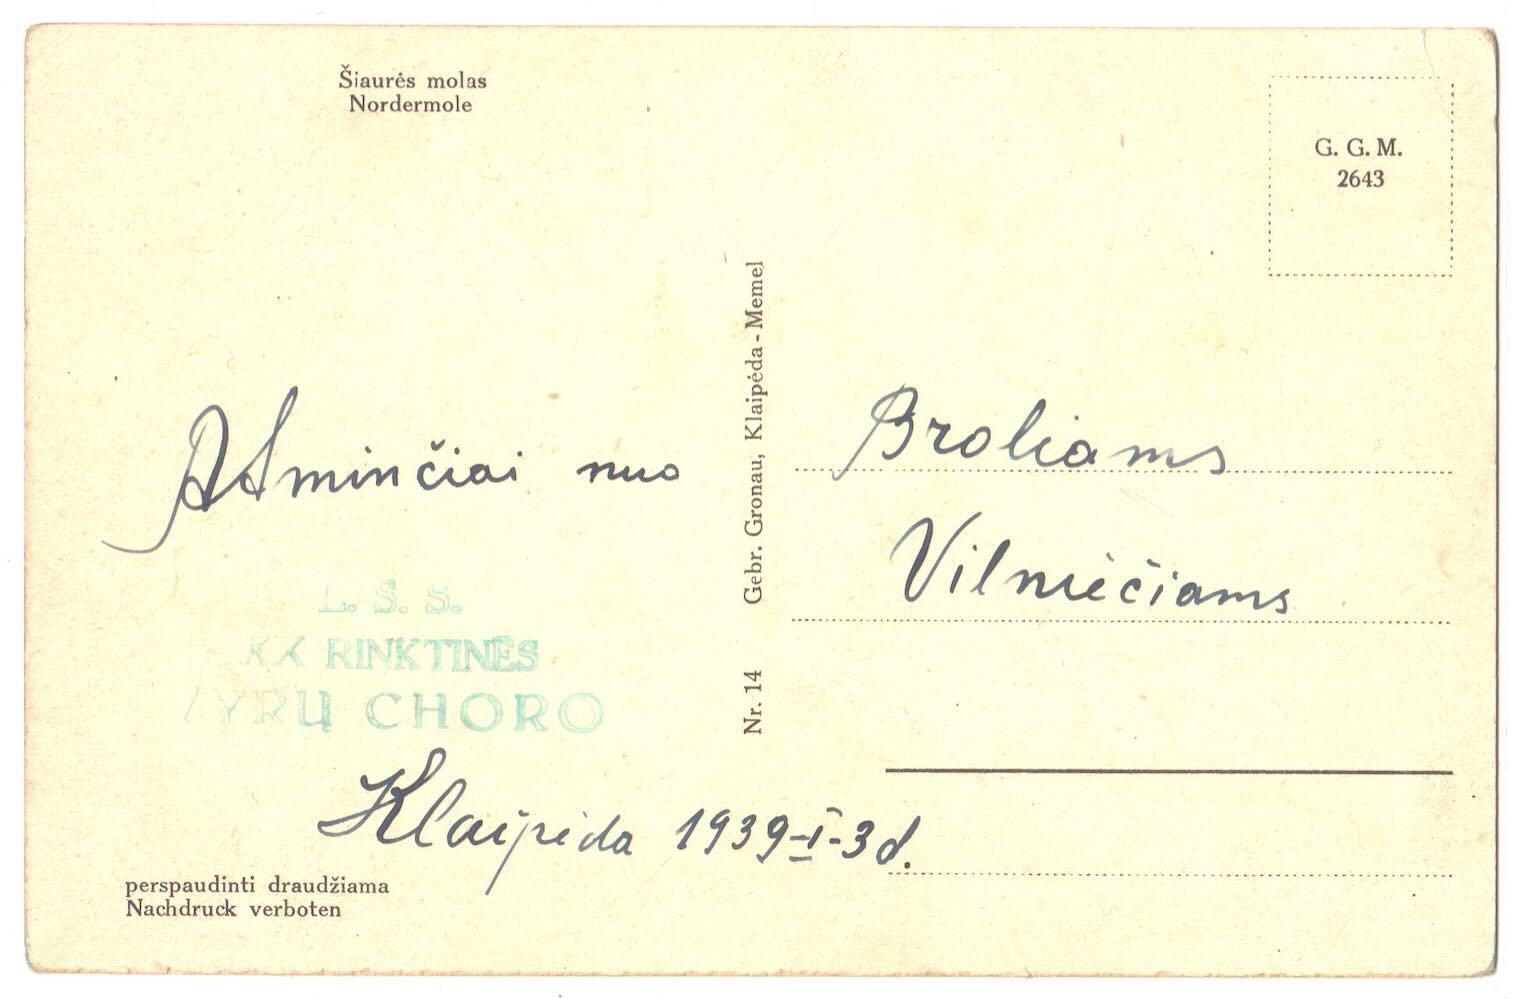 Šiaurės molas
Nordermole
G. G. M.
2643
Atminčiai nuo
L. Š. Š.
RINKTINĖS
VYRŲ CHORO
Klaipėda 1939-I-3 d.
perspaudinti draudžiama
Nachdruck verboten
Nr. 14 Gebr. Gronau, Klaipėda-Memel
Broliams
Vilniečiams